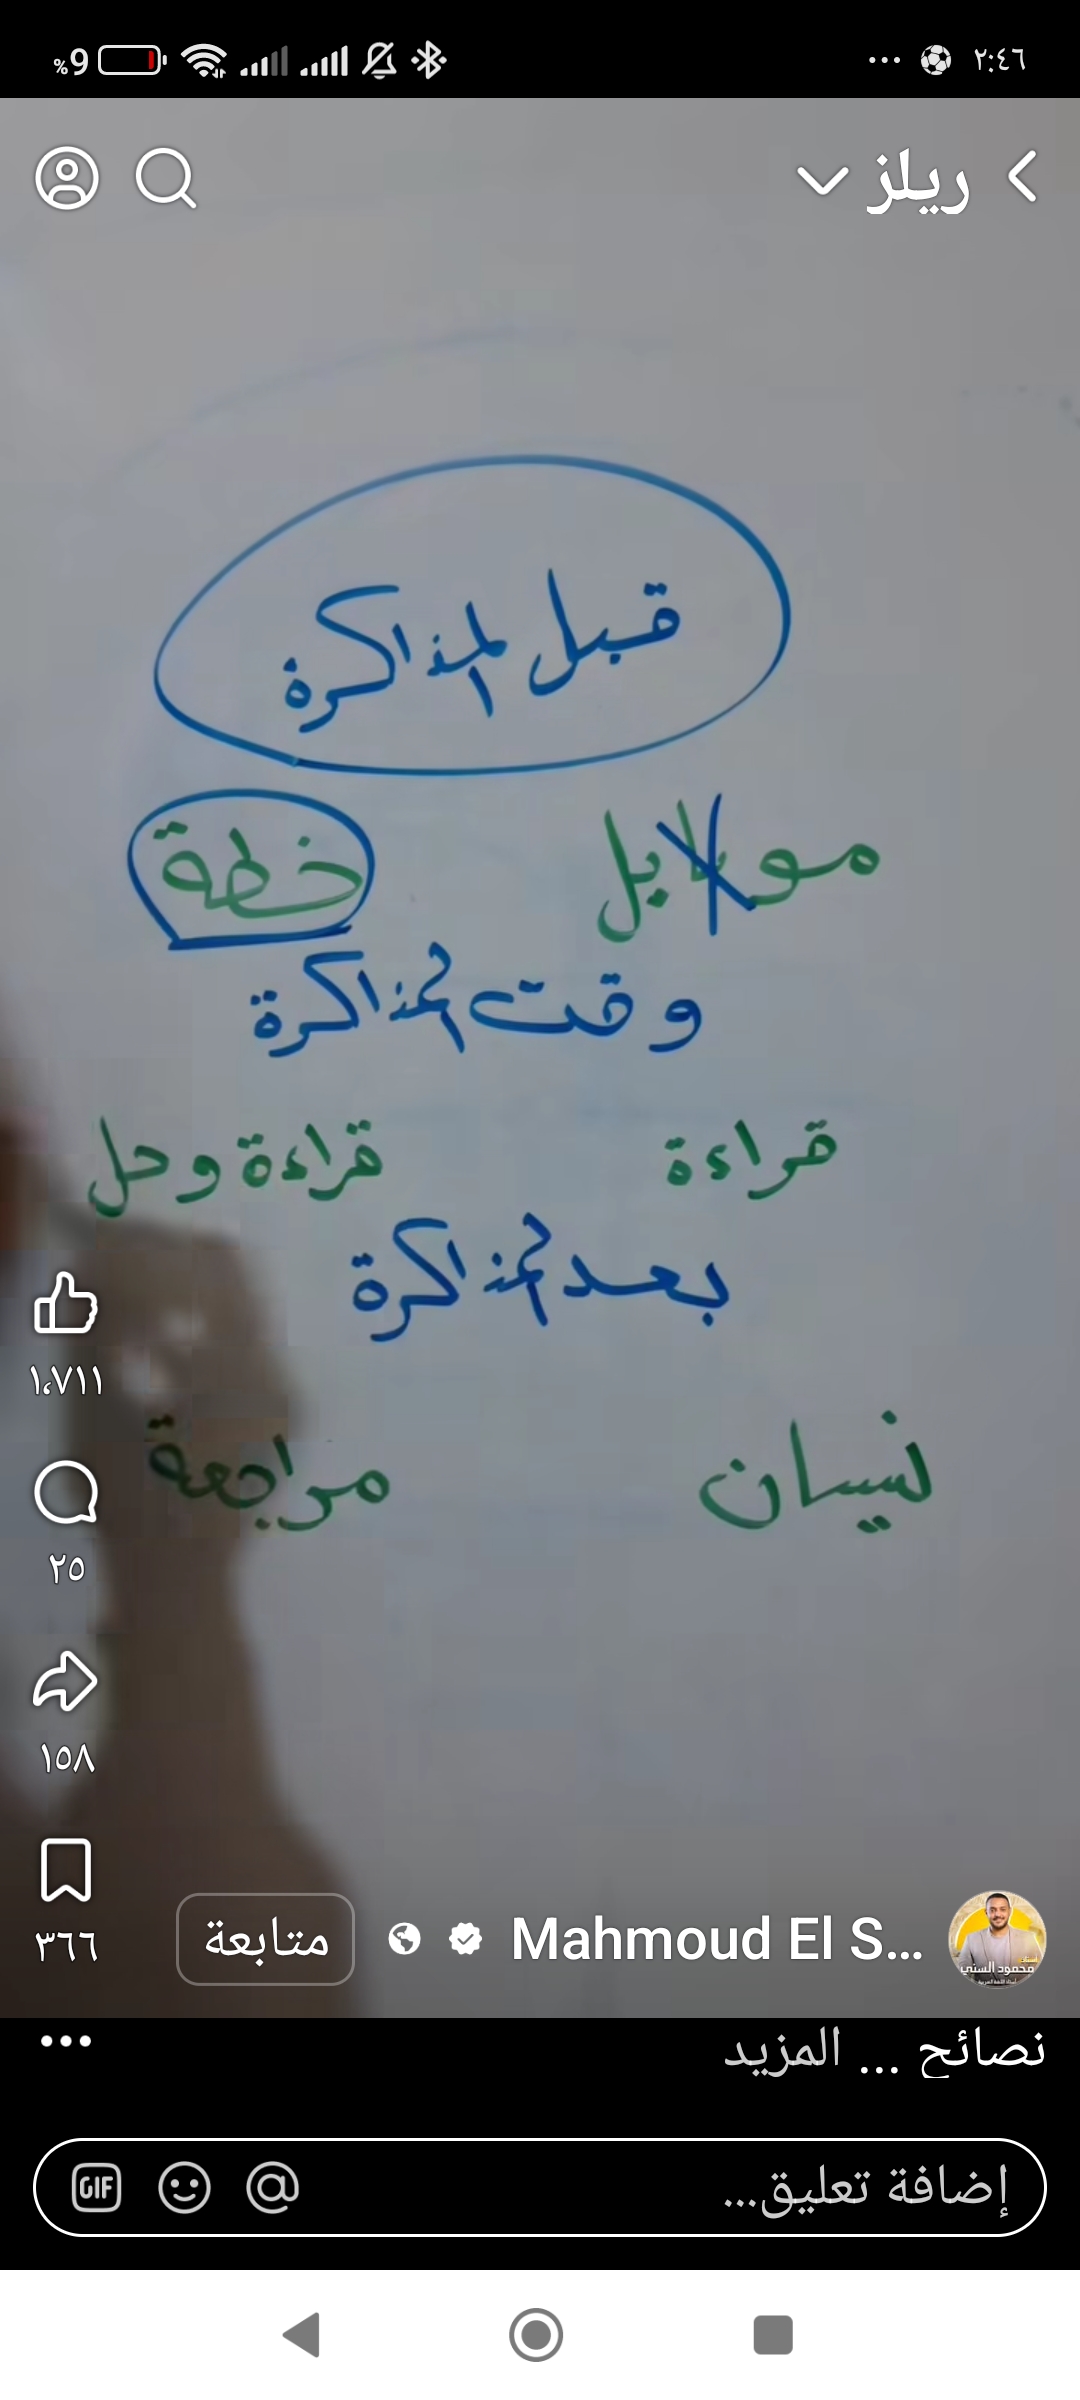 %9 ... ٢:٤٦
ريلز
قبل المذاكرة
موبايل خطة
وقت المذاكرة
قراءة قراءة وحل
بعد المذاكرة
نسيان مراجعة
١،٧١١
٢٥
١٥٨
٣٦٦
Mahmoud El S... متابعة
محمود السني
نصائح ... المزيد
إضافة تعليق...
GIF